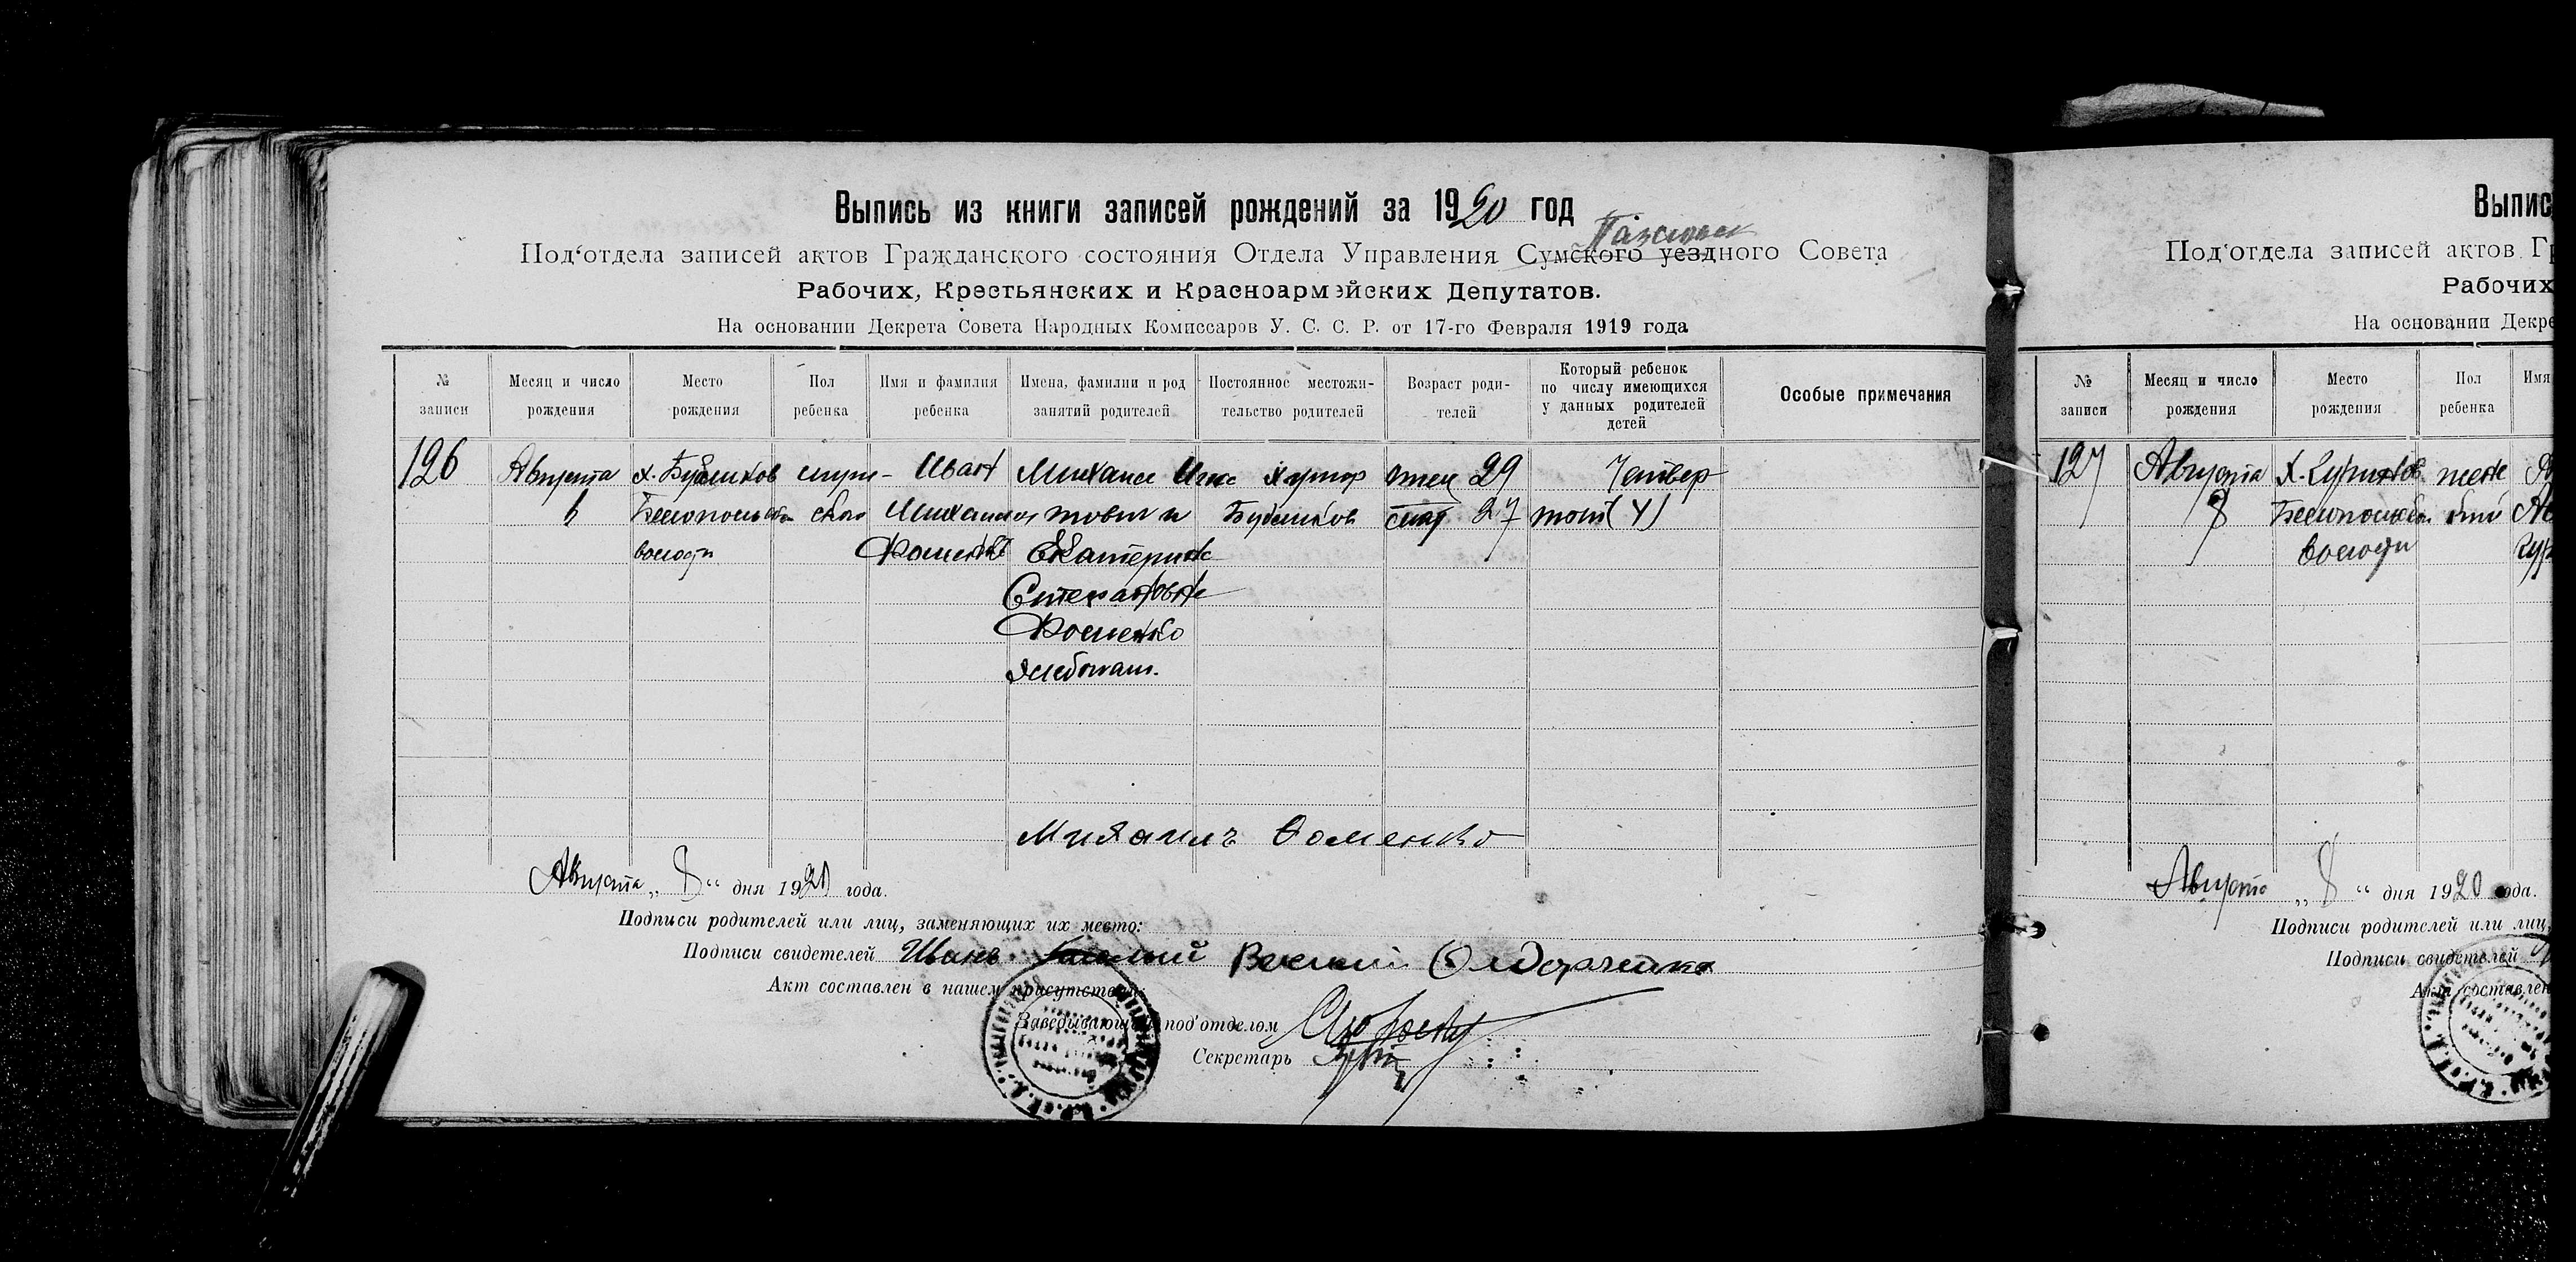 Выпись из книги записей рождений за 1920 год
Под‘отдела записей актов Гражданского состояния Отдела Управления Сумского уездного Совета
Рабочих, Крестьянских и Красноармейских Депутатов.
На основании Декрета Совета Народных Комиссаров У. С. С. Р. от 17-го Февраля 1919 года
№ записи
Месяц и число рождения
Место рождения
Пол ребенка
Имя и фамилия ребенка
Имена, фамилии и род занятий родителей
Постоянное местожительство родителей
Возраст родителей
Который ребенок по числу имеющихся у данных родителей детей
Особые примечания
126 Августа х. Бубликов муж- Иван Михаил хутор отец 29 Четвер
Белопольской ского Бубликов мат 27 тый (4)
волости Фоменко Екатерина
Степановна
Фоменко
хлебопаш.
Михаилъ Фоменко
Августа „ 8 “ дня 1920 года.
Подписи родителей или лиц, заменяющих их место:
Подписи свидетелей Иванъ
Акт составлен в нашем присутствии:
Заведывающий под‘отделом
Секретарь
Выпис
Под‘отдела записей актов Гр
Рабочих
На основании Декре
№ записи
Месяц и число рождения
Место рождения
Пол ребенка
Имя
127 Августа женс
8 Белопольской
волости
Августа „ 8 “ дня 1920 года.
Подписи родителей или лиц
Подписи свидетелей
Акт составлен